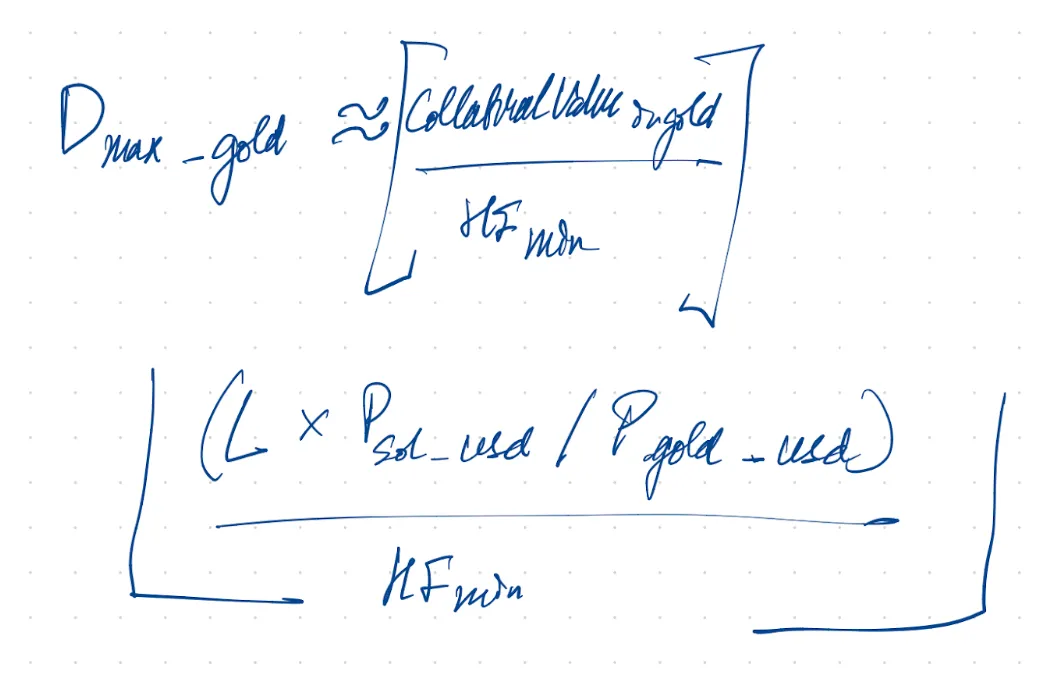 D max_gold ≈ [CollateralValue in gold
HF min]
(L × P sol_usd / P gold_usd)
HF min